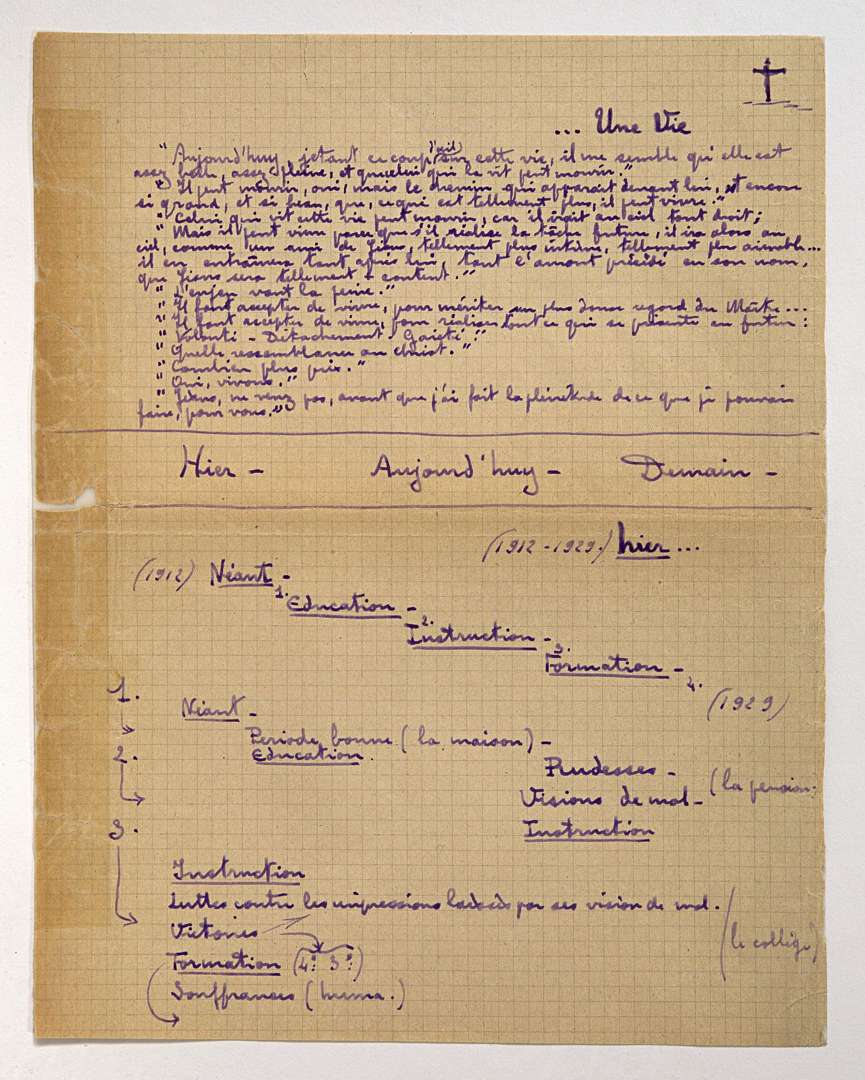 ... Une Vie
" Aujourd'huy, jetant ce coup d'œil sur cette vie, il me semble qu'elle est
assez belle, assez pleine, et que celui qui la vit peut mourir."
" Il peut mourir, oui, mais le chemin qui apparait devant lui, est encore
si grand, et si beau, que, ce qui est tellement plus, il peut vivre."
" Celui qui vit cette vie peut mourir, car il irait au ciel tout droit;
" Mais il peut vivre parce que s'il réalise la tâche future, il ira alors au
ciel, comme un ami de Jésus, tellement plus intime, tellement plus aimable...
il en entrainera tant après lui, tant l'auront précédé en son nom,
que Jésus sera tellement + content."
" L'enjeu vaut la peine."
" Il faut accepter de vivre, pour mériter un plus doux regard du Maître...
" Il faut accepter de vivre, pour réaliser tout ce qui se présente au futur :
" Volonté - Détachement - Gaieté."
" Quelle ressemblance au Christ."
" Combien plus près."
" Oui, vivons."
" Jésus, ne venez pas, avant que j'ai fait la plénitude de ce que je pouvais
faire, pour vous."
Hier - Aujourd'huy - Demain -
(1912 - 1929.) hier...
(1912) Néant -
1. Education -
2. Instruction -
3. Formation -
4. (1929)
1. Néant -
Periode bonne (la maison) -
2. Education.
Rudesses -
Visions de mal - (la pension.
Instruction
3.
Instruction
Luttes contre les impressions laissées par ses vision de mal.
Victoires
(le collège)
Formation (4e 3e)
Souffrances (huma.)